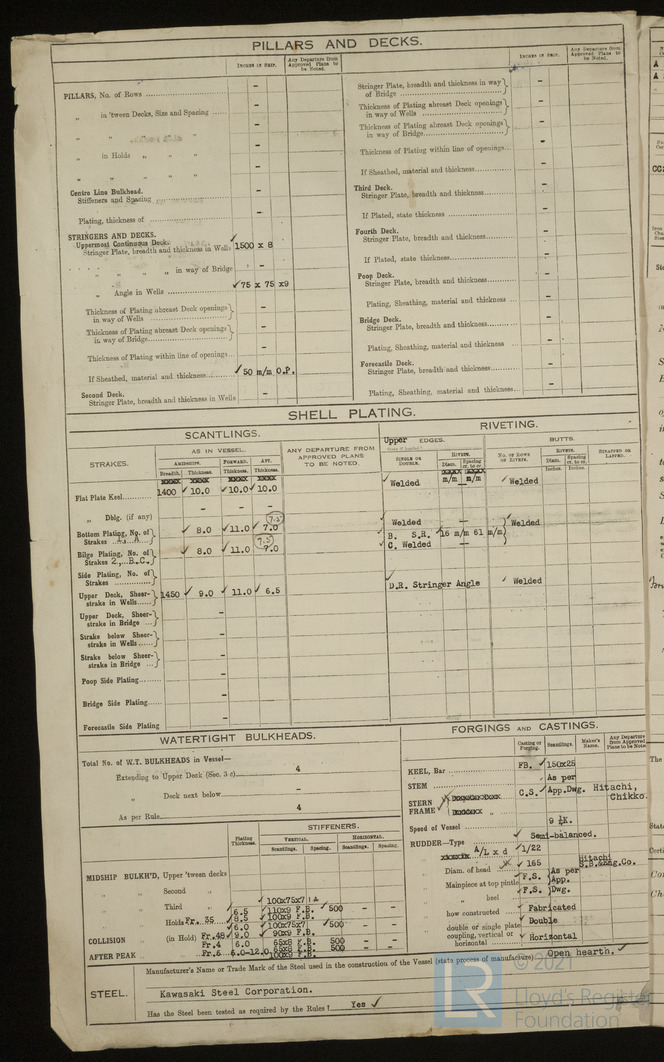 PILLARS AND DECKS.
INCHES IN SHIP.
Any Departure from Approved Plans to be Noted.
PILLARS, No. of Rows –
„ in 'tween Decks, Size and Spacing –
„ „ „ –
„ in Holds „ „ –
„ „ „ –
Centre Line Bulkhead.
Stiffeners and Spacing –
Plating, thickness of –
STRINGERS AND DECKS.
Uppermost Continuous Deck.
Stringer Plate, breadth and thickness in Wells ✓ 1500 x 8
„ „ „ „ in way of Bridge –
„ Angle in Wells ✓75 x 75 x9
Thickness of Plating abreast Deck openings in way of Wells –
Thickness of Plating abreast Deck openings in way of Bridge –
Thickness of Plating within line of openings –
If Sheathed, material and thickness ✓50 m/m O.P.
Second Deck.
Stringer Plate, breadth and thickness in Wells –
INCHES IN SHIP.
Any Departure from Approved Plans to be Noted.
Stringer Plate, breadth and thickness in way of Bridge –
Thickness of Plating abreast Deck openings in way of Wells –
Thickness of Plating abreast Deck openings in way of Bridge –
Thickness of Plating within line of openings –
If Sheathed, material and thickness –
Third Deck.
Stringer Plate, breadth and thickness –
If Plated, state thickness –
Fourth Deck.
Stringer Plate, breadth and thickness –
If Plated, state thickness –
Poop Deck.
Stringer Plate, breadth and thickness –
Plating, Sheathing, material and thickness –
Bridge Deck.
Stringer Plate, breadth and thickness –
Plating, Sheathing, material and thickness –
Forecastle Deck.
Stringer Plate, breadth and thickness –
Plating, Sheathing, material and thickness –
SHELL PLATING.
SCANTLINGS.
RIVETING.
STRAKES.
AS IN VESSEL.
ANY DEPARTURE FROM APPROVED PLANS TO BE NOTED.
Upper EDGES.
BUTTS.
AMIDSHIPS. FORWARD. AFT.
Breadth. Thickness. Thickness. Thickness.
SINGLE OR DOUBLE.
RIVETS.
Diam. Spacing cr. to cr.
m/m m/m
No. of Rows of Rivets.
RIVETS.
Diam. Spacing cr. to cr.
Inches. Inches.
STRAPPED OR LAPPED.
Flat Plate Keel 1400 ✓ 10.0 ✓10.0 ✓10.0 ✓Welded – ✓Welded
„ Dblg. (if any) – – –
Bottom Plating, No. of Strakes A ✓ 8.0 ✓11.0 ✓ 7.0 (7.5) Welded – Welded
B. S.R. ✓16 m/m 61 m/m
Bilge Plating, No. of Strakes 2, B.C. ✓ 8.0 ✓ 11.0 7.0 (7.5) C. Welded –
Side Plating, No. of Strakes
Upper Deck, Sheerstrake in Wells 1450 ✓ 9.0 ✓ 11.0 ✓ 6.5 D.R. Stringer Angle ✓ Welded
Upper Deck, Sheerstrake in Bridge –
Strake below Sheerstrake in Wells –
Strake below Sheerstrake in Bridge –
Poop Side Plating –
Bridge Side Plating –
Forecastle Side Plating –
WATERTIGHT BULKHEADS.
Total No. of W.T. BULKHEADS in Vessel—
Extending to Upper Deck (Sec. 3 c) 4
„ Deck next below –
As per Rule 4
Plating Thickness.
STIFFENERS.
VERTICAL. HORIZONTAL.
Scantlings. Spacing. Scantlings. Spacing.
MIDSHIP BULKH'D, Upper 'tween decks
„ „ Second „
„ „ Third „
100x75x7
✓ 6.5 110x9 F.B. ✓500 – –
„ „ Holds Fr. 35 8.5 100x9 F.B.
✓6.0 100x75x7 ✓500 – –
COLLISION „ (in Hold) Fr.48 ✓ 9.0 90x9 F.B.
Fr.4 6.0 65x8 F.B. 500 – –
AFTER PEAK „ Fr.6 6.0-12.0 65x8 F.B. 500 – –
100x9 F.B.
FORGINGS AND CASTINGS.
Casting or Forging. Scantlings. Maker's Name. Any Departure from Approved Plans to be Noted.
KEEL, Bar FB. ✓150x25
STEM As per
STERN FRAME C.S. App.Dwg. Hitachi, Chikko.
Speed of Vessel 9 ½K.
RUDDER—Type ✓ Semi-balanced.
A/L x d ✓1/22
Diam. of head ✓ 165 Hitachi S.B.&Eng.Co.
Mainpiece at top pintle ✓F.S. As per App.
„ heel ✓F.S. Dwg.
how constructed ✓ Fabricated
double or single plate ✓ Double
coupling, vertical or horizontal ✓ Horizontal
STEEL.
Manufacturer's Name or Trade Mark of the Steel used in the construction of the Vessel (state process of manufacture) Open hearth. ✓
Kawasaki Steel Corporation.
Has the Steel been tested as required by the Rules? Yes ✓
© 2021
LR
Lloyd's Register
Foundation